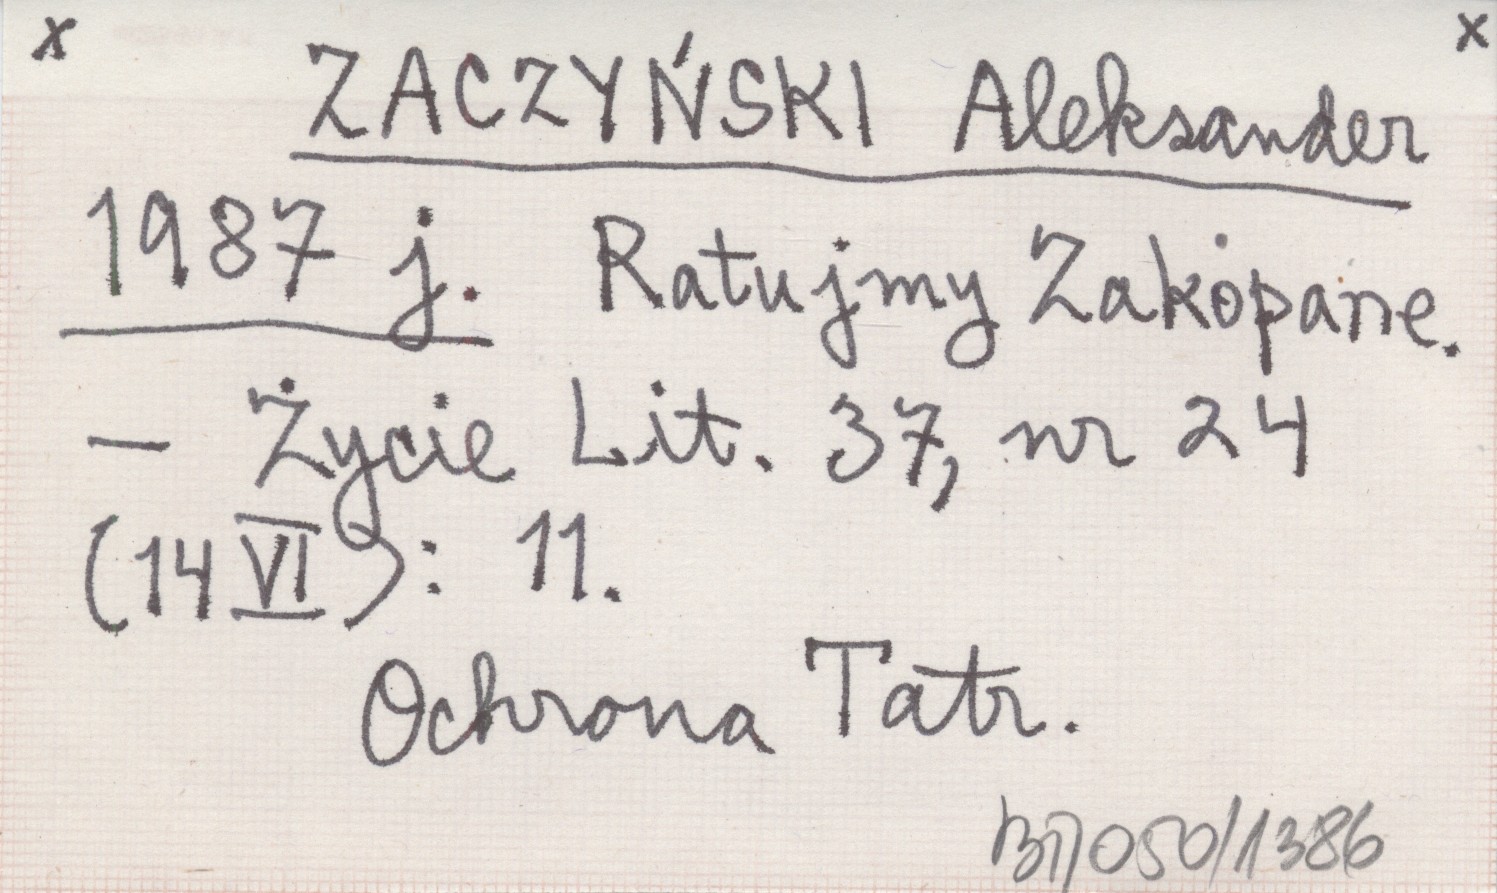 x x
ZACZYŃSKI Aleksander
1987 j. Ratujmy Zakopane.
— Życie Lit. 37, nr 24
(14 VI): 11.
Ochrona Tatr.
050/1386